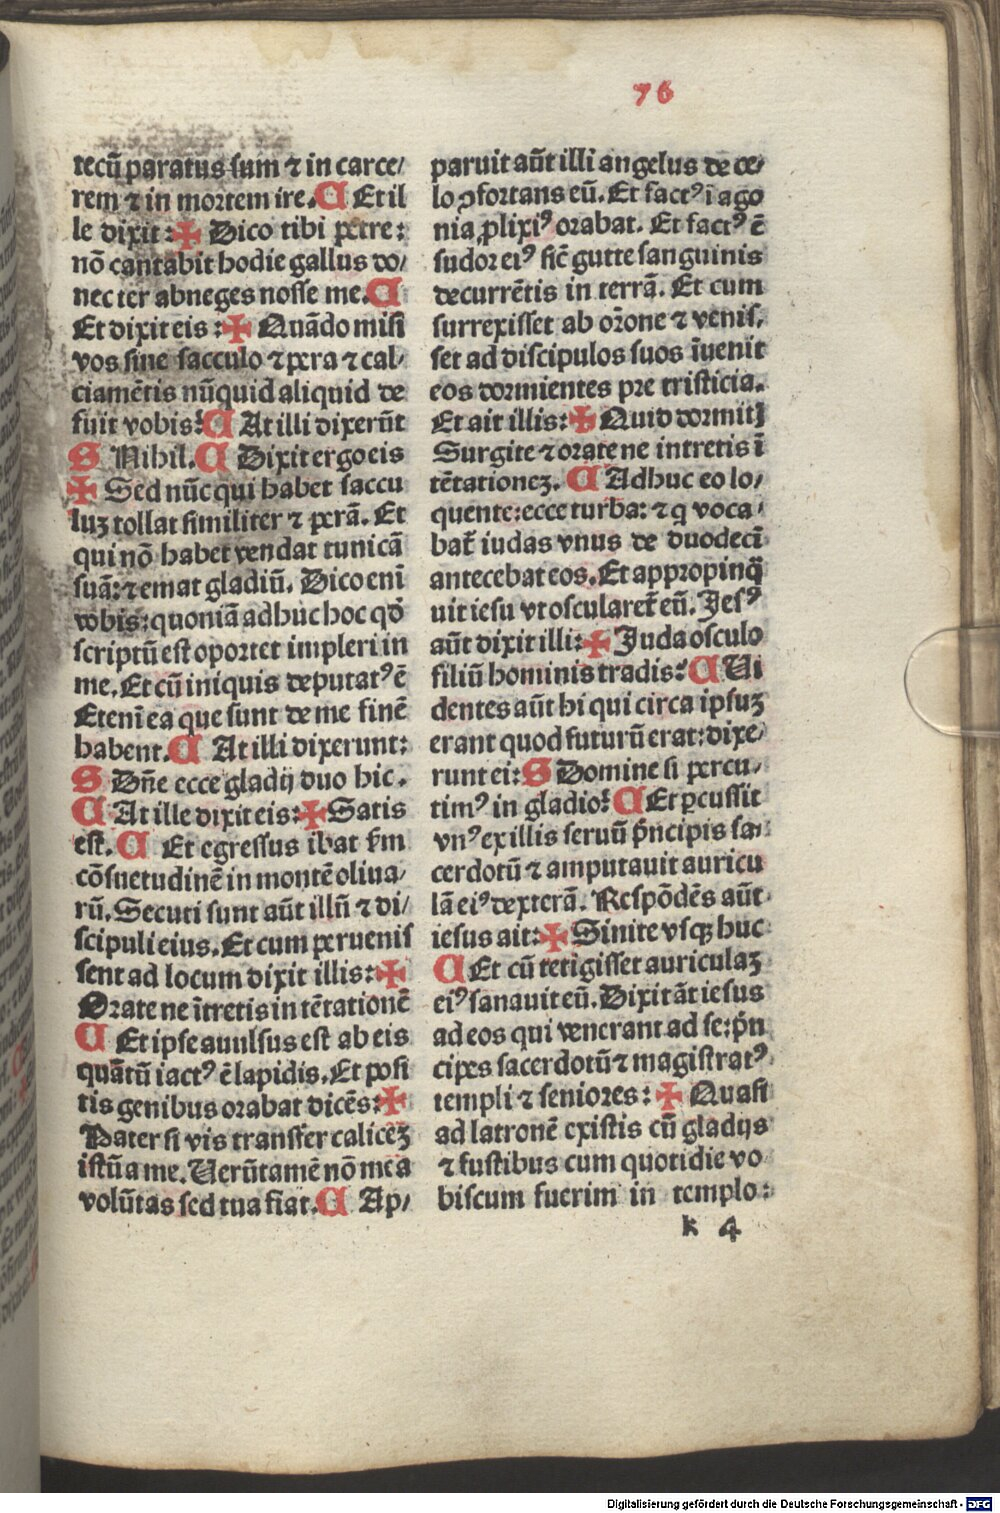 76
tecū paratus sum ⁊ in carce/
rem ⁊ in mortem ire. C Et il
le dixit: ✠ Dico tibi petre:
nō cantabit hodie gallus do/
nec ter abneges nosse me. C
Et dixit eis: ✠ Quādo misi
vos sine sacculo ⁊ pera ⁊ cal/
ciamētis nūquid aliquid de
fuit vobis? C At illi dixerūt
S Nihil. C Dixit ergo eis
✠ Sed nūc qui habet saccu
luꝫ tollat similiter ⁊ perā. Et
qui nō habet vendat tunicā
suā: ⁊ emat gladiū. Dico enī
vobis: quoniā adhuc hoc qď
scriptū est oportet impleri in
me. Et cū iniquis deputatꝰ ē
Etenī ea que sunt de me finē
habent. C At illi dixerunt:
S Dn̄e ecce gladij duo hic.
C At ille dixit eis: ✠ Satis
est. C Et egressus ibat ẜm
cōsuetudinē in montē oliua/
rū. Secuti sunt aūt illū ⁊ di/
scipuli eius. Et cum peruenis
sent ad locum dixit illis: ✠
Orate ne ītretis in tētationē
C Et ipse auulsus est ab eis
quātū iactꝰ ē lapidis. Et posi
tis genibus orabat dicēs: ✠
Pater si vis transfer caliceꝫ
istū a me. Uerūtamē nō mea
volūtas sed tua fiat. C Ap/
paruit aūt illi angelus de ce/
lo ꝯfortans eū. Et factꝰ ī ago
nia ꝓlixiꝰ orabat. Et factꝰ ē
sudor eiꝰ sic̄ gutte sanguinis
decurrētis in terrā. Et cum
surrexisset ab or̄one ⁊ venis/
set ad discipulos suos īuenit
eos dormientes pre tristicia.
Et ait illis: ✠ Quid dormitꝭ
Surgite ⁊ orate ne intretis ī
tētationeꝫ. C Adhuc eo lo/
quente: ecce turba: ⁊ q voca/
bat̄ iudas vnus de duodecī
antecebat eos. Et appropinq̄
uit iesu vt oscularet̄ eū. Jesꝰ
aūt dixit illi: ✠ Juda osculo
filiū hominis tradis? C Ui
dentes aūt hi qui circa ipsuꝫ
erant quod futurū erat: dixe/
runt ei: S Domine si percu/
timꝰ in gladio? C Et ꝑcussit
vnꝰ ex illis seruū pn̄cipis sa/
cerdotū ⁊ amputauit auricu
lā eiꝰ dexterā. Respōdēs aūt
iesus ait: ✠ Sinite vsqꝫ huc
C Et cū tetigisset auriculaꝫ
eiꝰ sanauit eū. Dixit āt iesus
ad eos qui venerant ad se: pn̄
cipes sacerdotū ⁊ magistratꝰ
templi ⁊ seniores: ✠ Quasi
ad latronē existis cū gladijs
⁊ fustibus cum quotidie vo
biscum fuerim in templo:
k 4
Digitalisierung gefördert durch die Deutsche Forschungsgemeinschaft - DFG